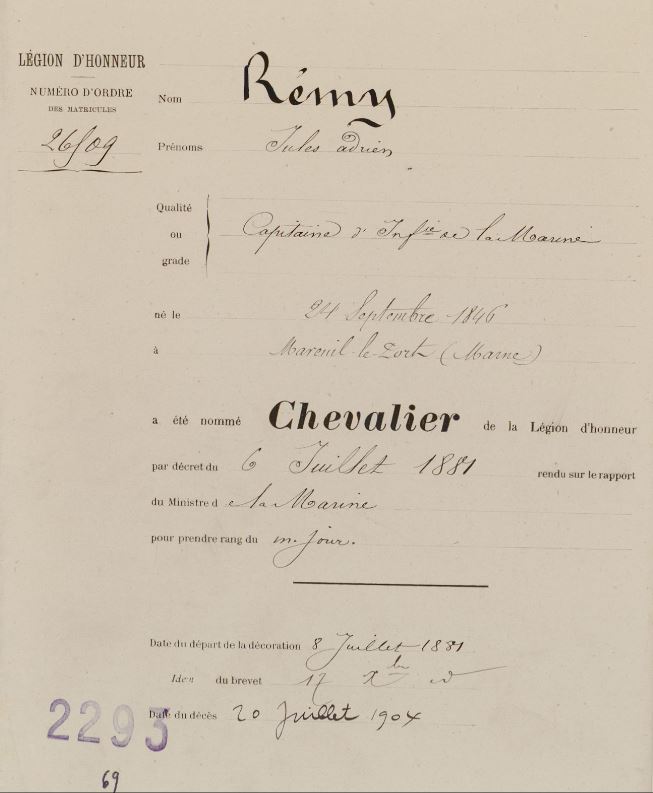 LÉGION D'HONNEUR
NUMÉRO D'ORDRE
DES MATRICULES
26509
Nom Rémy
Prénoms Jules adrien
Qualité
ou
grade
Capitaine d'Inf.ie de la Marine
né le 24 Septembre 1846
à Mareuil-le-Port (Marne)
a été nommé Chevalier de la Légion d'honneur
par décret du 6 Juillet 1881 rendu sur le rapport
du Ministre de la Marine
pour prendre rang du m. jour.
Date du départ de la décoration 8 Juillet 1881
Idem du brevet 17 Xbre id
Date du décès 20 Juillet 1904
2293
69